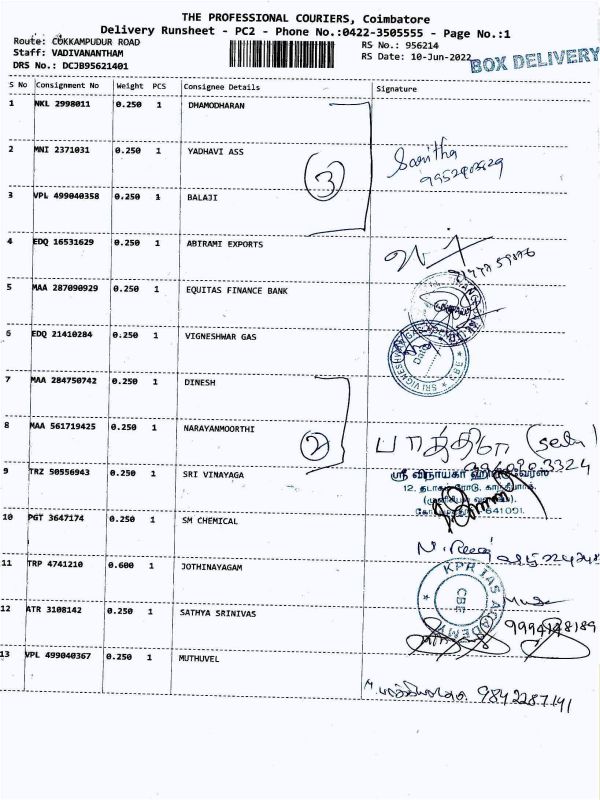 THE PROFESSIONAL COURIERS, Coimbatore
Delivery Runsheet - PC2 - Phone No.:0422-3505555 - Page No.:1
Route: COKKAMPUDUR ROAD
Staff: VADIVANANTHAM
DRS No.: DCJB95621401
RS No.: 956214
RS Date: 10-Jun-2022
BOX DELIVERY
S No Consignment No Weight PCS Consignee Details Signature
1 NKL 2998011 0.250 1 DHAMODHARAN
2 MNI 2371031 0.250 1 YADHAVI ASS
Saritha
3
3 VPL 499040358 0.250 1 BALAJI
4 EDQ 16531629 0.250 1 ABIRAMI EXPORTS
5 MAA 287090929 0.250 1 EQUITAS FINANCE BANK
6 EDQ 21410284 0.250 1 VIGNESHWAR GAS
7 MAA 284750742 0.250 1 DINESH
8 MAA 561719425 0.250 1 NARAYANMOORTHI
2
9 TRZ 50556943 0.250 1 SRI VINAYAGA
ஸ்ரீ விநாயகா
641001.
10 PGT 3647174 0.250 1 SM CHEMICAL
11 TRP 4741210 0.600 1 JOTHINAYAGAM
KPR IAS ACADEMY
CBE
12 ATR 3108142 0.250 1 SATHYA SRINIVAS
9994148189
13 VPL 499040367 0.250 1 MUTHUVEL
9842287141